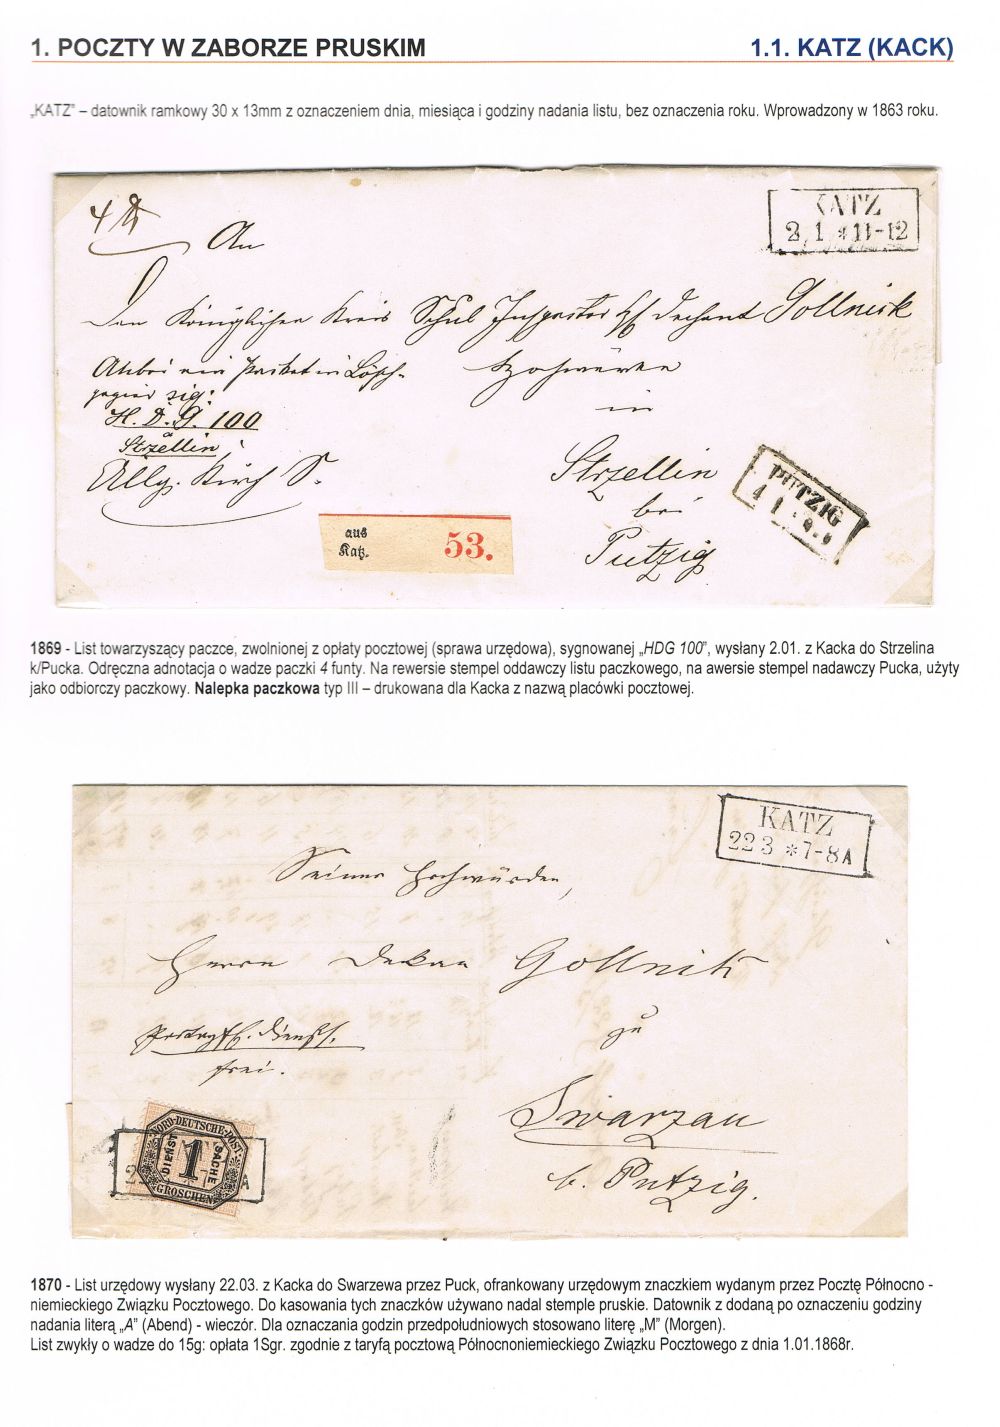 1. POCZTY W ZABORZE PRUSKIM
1.1. KATZ (KACK)
„KATZ” – datownik ramkowy 30 x 13mm z oznaczeniem dnia, miesiąca i godziny nadania listu, bez oznaczenia roku. Wprowadzony w 1863 roku.
KATZ
2 1 * 11-12
An
Den Königlichen Kreis Schul Inspector Dechant Gollnick
Anbei ein Packet in Lösch-
papier sig:
H. D. G. 100
Strzellin
Allg. Kirch S.
Hochwürden
in
Strzellin
bei
Putzig
PUTZIG
4 1
aus
Katz.
53.
1869 - List towarzyszący paczce, zwolnionej z opłaty pocztowej (sprawa urzędowa), sygnowanej „HDG 100”, wysłany 2.01. z Kacka do Strzelina
k/Pucka. Odręczna adnotacja o wadze paczki 4 funty. Na rewersie stempel oddawczy listu paczkowego, na awersie stempel nadawczy Pucka, użyty
jako odbiorczy paczkowy. Nalepka paczkowa typ III – drukowana dla Kacka z nazwą placówki pocztowej.
KATZ
22 3 * 7-8A
Seiner Hochwürden,
Herrn Dekan Gollnick
zu
Swarzau
b. Putzig.
frei.
NORD-DEUTSCHE-POST
DIENST
1
SACHE
GROSCHEN
1870 - List urzędowy wysłany 22.03. z Kacka do Swarzewa przez Puck, ofrankowany urzędowym znaczkiem wydanym przez Pocztę Północno -
niemieckiego Związku Pocztowego. Do kasowania tych znaczków używano nadal stemple pruskie. Datownik z dodaną po oznaczeniu godziny
nadania literą „A” (Abend) - wieczór. Dla oznaczania godzin przedpołudniowych stosowano literę „M” (Morgen).
List zwykły o wadze do 15g: opłata 1Sgr. zgodnie z taryfą pocztową Północnoniemieckiego Związku Pocztowego z dnia 1.01.1868r.